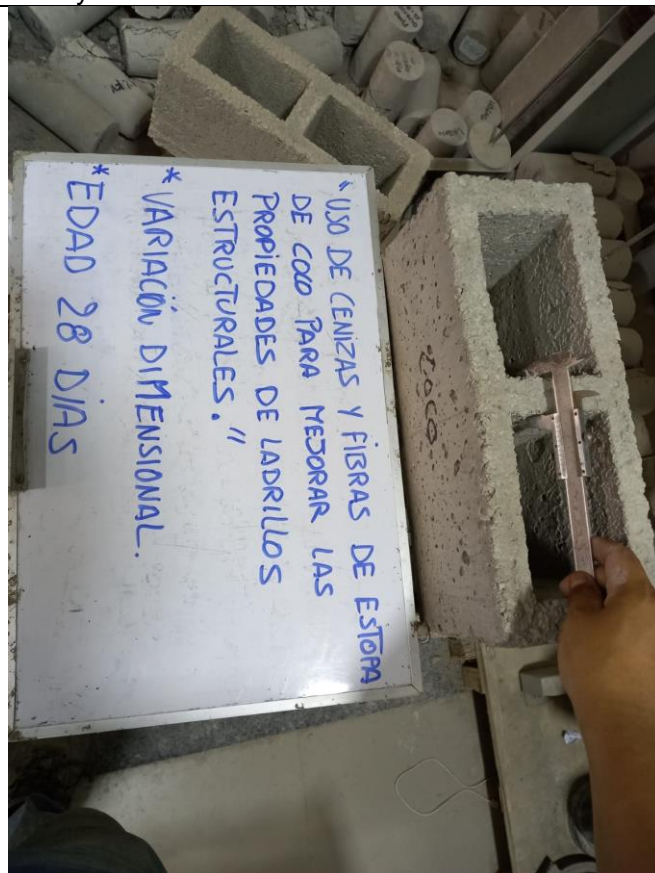 "USO DE CENIZAS Y FIBRAS DE ESTOPA
DE COCO PARA MEJORAR LAS
PROPIEDADES DE LADRILLOS
ESTRUCTURALES."
*VARIACIÓN DIMENSIONAL.
*EDAD 28 DIAS